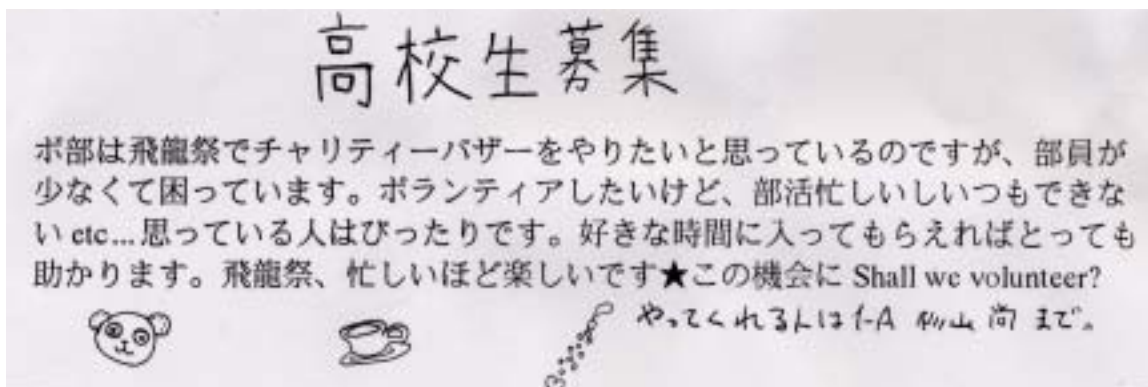 高校生募集
ボ部は飛龍祭でチャリティーバザーをやりたいと思っているのですが、部員が
少なくて困っています。ボランティアしたいけど、部活忙しいしいつもできな
い etc...思っている人はぴったりです。好きな時間に入ってもらえればとっても
助かります。飛龍祭、忙しいほど楽しいです★この機会に Shall we volunteer?
やってくれる人は1-A 杉山 尚 まで。